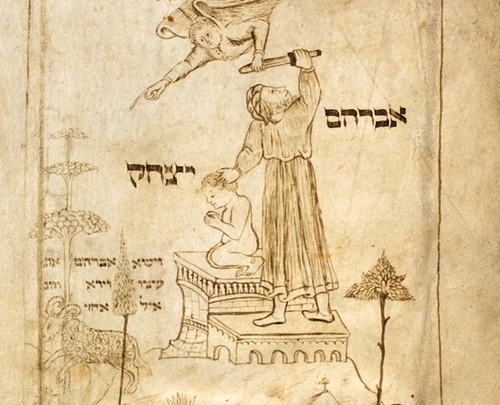 אברהם
ייצחק
וישא אברהם את
עיניו וירא
איל אחר